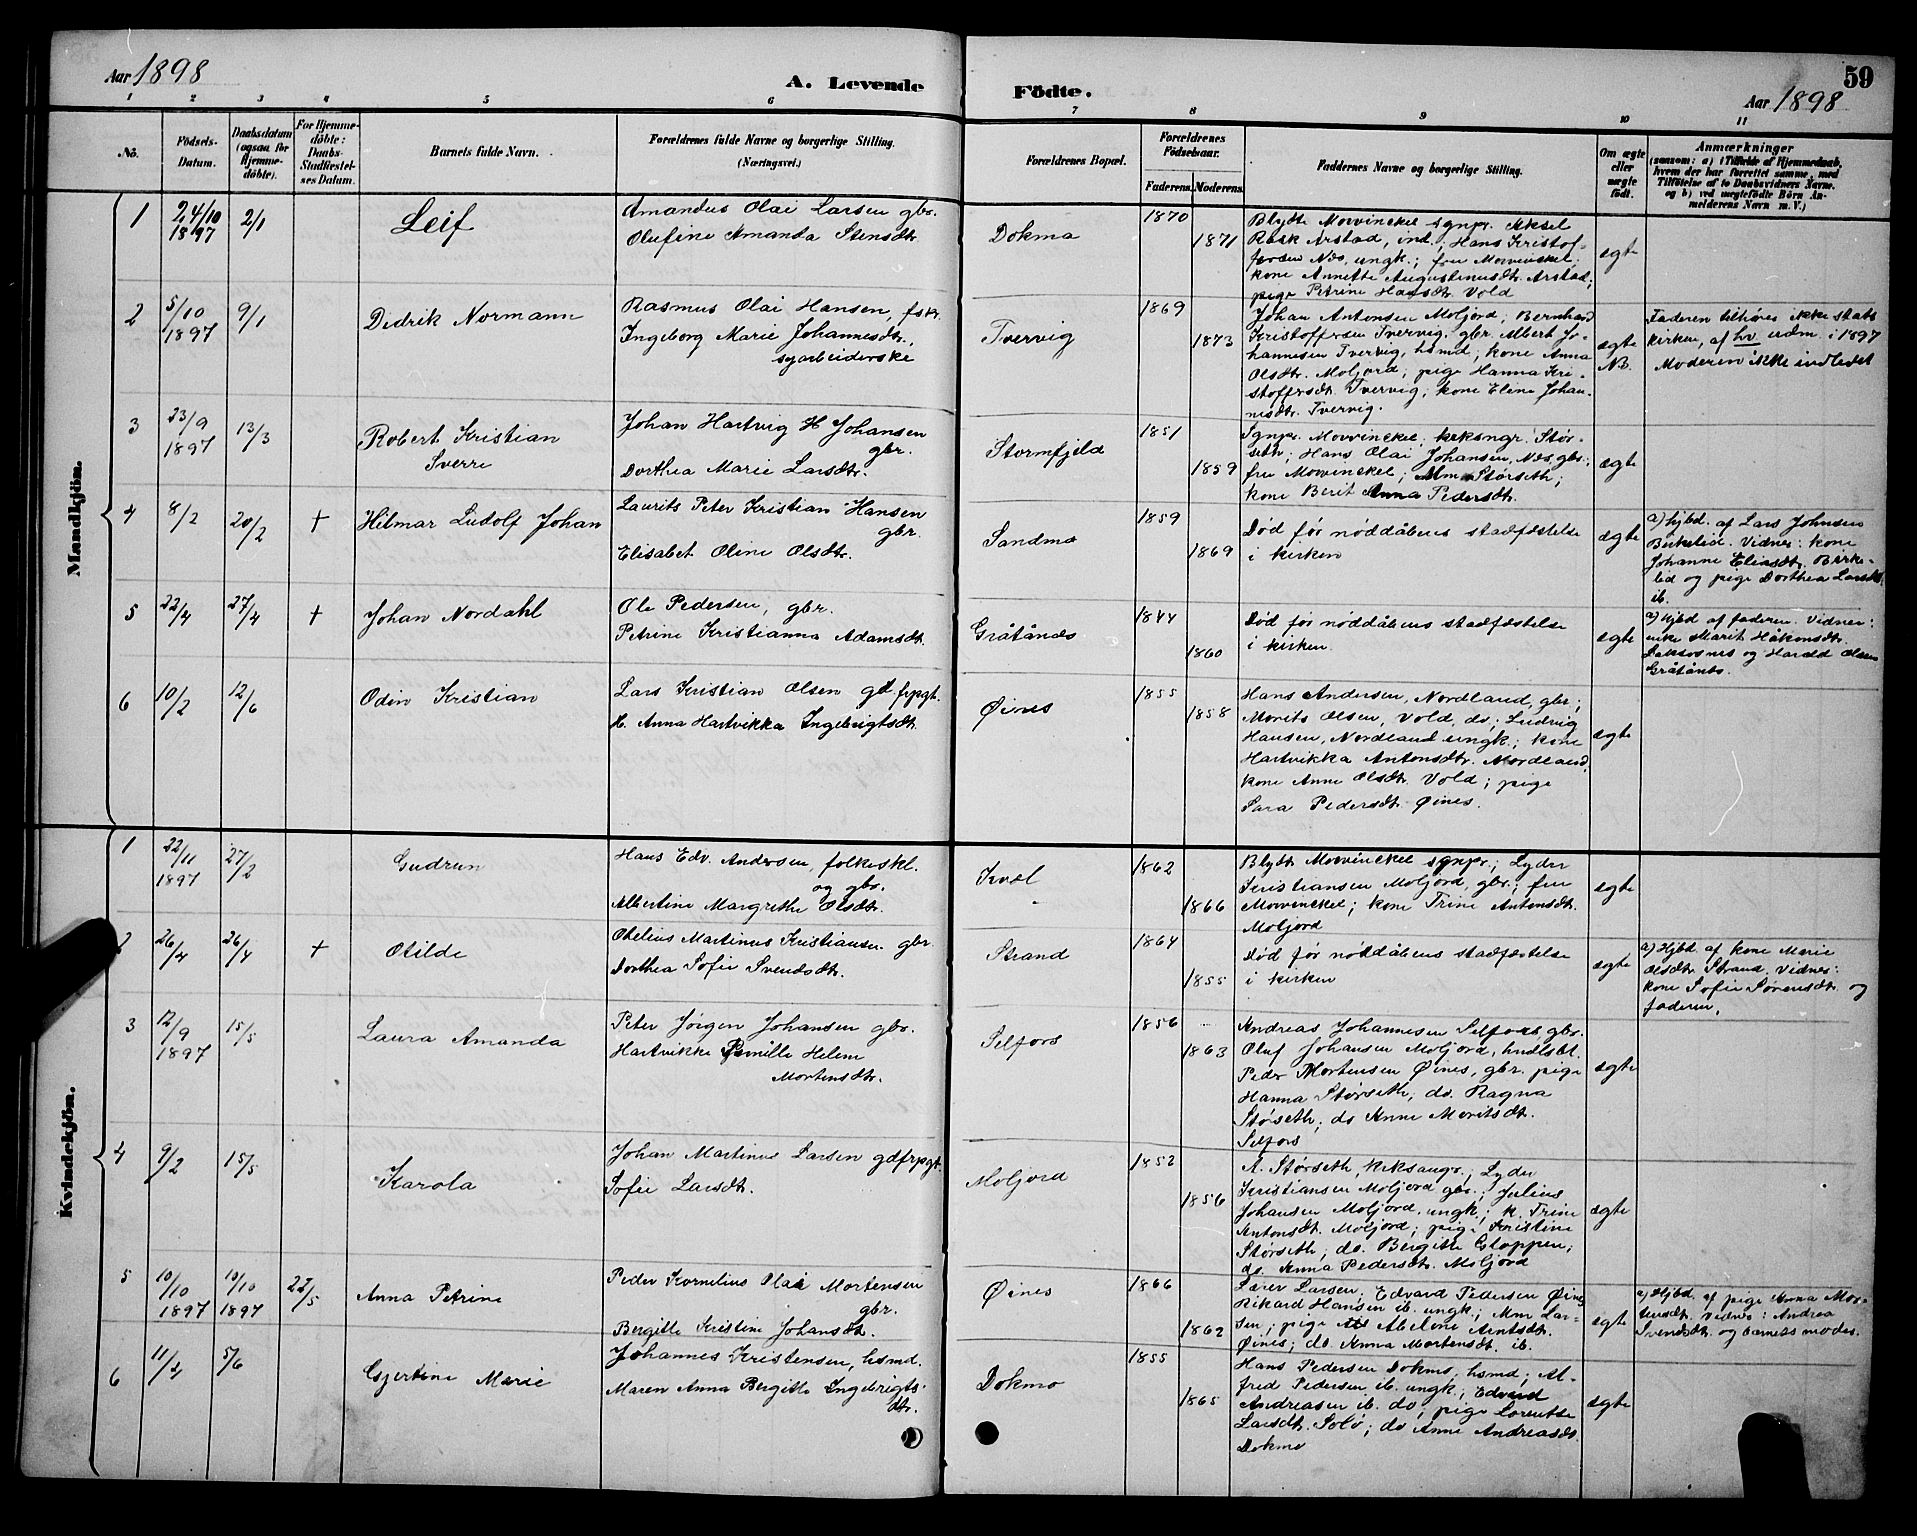 Aar 1898
A. Levende
Födte.
59
Aar 1898
1 2 3 4 5 6 7 8 9 10 11
No.
Födsels-
Datum.
Daabsdatum
(ogsaa for
Hjemme-
döbte).
For Hjemme-
döbte:
Daabs-
Stadfæstel-
ses Datum.
Barnets fulde Navn.
Forældrenes fulde Navne og borgerlige Stilling.
(Næringsvei.)
Forældrenes Bopæl.
Forældrenes
Födselsaar.
Faderens. Moderens.
Faddernes Navne og borgerlige Stilling.
Om ægte
eller
uægte
födt.
Anmærkninger
(saasom: a) i Tilfælde af Hjemmedaab,
hvem der har forrettet samme, med
Tilföielse af to Daabsvidners Navne,
og b) ved uægtefödte Börn An-
melderens Navn m. V.)
Mandkjön.
1
24/10
1897
2/1
Leif
Amandus Olai Larsen gbr.
Olufine Amanda Stensdtr.
Dokmo
1870
1871
Blydt Mowinckel sgnpr. Aksel
Rask Arstad, ind.; Hans Kristof-
fersen Nes, ungk.; fru Mowinckel;
kone Annette Augustinusdtr. Arstad;
pige Petrine Hansdtr. Vold
ægte
2
5/10
1897
9/1
Dedrik Normann
Rasmus Olai Hansen, fskr.
Ingeborg Marie Johannesdtr.,
syarbeiderske
Tvervig
1869
1873
Johan Antonsen Moljord; Bernhard
Kristoffersen Tvervig, gbr. Albert Jo-
hannesen Tvervig, hsmd; kone Anna
Olsdtr. Moljord; pige Hanna Kri-
stoffersdtr. Tvervig; kone Eline Johan-
nesdtr. Tvervig.
ægte
NB.
Faderen tilhører ikke stats
kirken, af hv udm. i 1897
Moderen ikke indledet
3
23/9
1897
13/3
Robert Kristian
Sverre
Johan Hartvig H Johansen
gbr.
Dorthea Marie Larsdtr.
Stormfjeld
1851
1859
Sgnpr. Mowinckel, kirksngr. Stør-
seth; Hans Olai Johansen, Nes, gbr.;
fru Mowinckel; Mm Størseth;
kone Berit Anna Pedersdtr.
ægte
4
8/2
20/2
+
Hilmar Ludolf Johan
Laurits Peter Kristian Hansen
gbr.
Elisabet Oline Olsdtr.
Sandmo
1859
1869
Død før nøddåbens stadfæstelse
i kirken
ægte
a) hjbd. af Lars Johnsen
Birkelid. Vidner: kone
Johanne Eliasdtr. Birke-
lid og pige Dorthea Larsdtr.
ib.
5
22/4
27/4
+
Johan Nordahl
Ole Pedersen, gbr.
Petrine Kristianna Adamsdtr.
Gråtånes
1844
1860
Død før nøddåbens stadfæstelse
i kirken.
ægte
a) Hjbd af faderen. Vidner:
enke Marit Håkonsdtr.
og Harald Olsen
Gråtånes.
6
10/2
12/6
Odin Kristian
Lars Kristian Olsen gd. frpgt.
H. Anna Hartvikka Ingebrigtsdtr.
Øines
1855
1858
Hans Andersen, Nordland, gbr.;
Morits Olsen, Vold, do; Ludvig
Hansen, Nordland ungk.; kone
Hartvikka Antonsdtr. Nordland;
kone Anne Olsdtr. Vold; pige
Sara Pedersdtr. Øines.
ægte
Kvindekjön.
1
22/11
1897
27/2
Gudrun
Hans Edv. Andersen, folkeskl.
og gbr.
Albertine Margrethe Olsdtr.
Kvæl
1862
1866
Blydt Mowinckel sgnpr.; Lyder
Kristiansen Moljord, gbr.; fru
Mowinckel; kone Trine Antonsdtr.
Moljord
ægte
2
26/4
26/4
+
Otilde
Otelius Martinus Kristiansen gbr.
Dorthea Sofie Svendsdtr.
Strand
1864
1855
Død før nøddåbens stadfæstelse
i kirken
ægte
a) Hjbd. af kone Marie
Olsdtr. Strand. Vidner:
kone Sofie Sørensdtr. og
faderen.
3
12/9
1897
15/5
Laura Amanda
Peter Jørgen Johansen gbr.
Hartvikke Pernille Helene
Mortensdtr.
Selfors
1856
1863
Andreas Johannesen Selfors gbr.
Oluf Johansen Moljord, hndlsbt.
Peder Mortensen Øines, gbr. pige
Hanna Størseth; do. Ragna
Størseth; do Anne Moritsdtr.
Selfors
ægte
4
9/2
15/5
Karola
Johan Martinus Larsen gdfrpgt.
Sofie Larsdtr.
Moljord
1852
1856
A. Størseth, kirksangr.; Lyder
Kristiansen Moljord gbr.; Julius
Johansen Moljord, ungk.; k. Trine
Antonsdtr. Moljord; pige Kristine
Størseth; do. Bergithe Gloppen;
do. Anna Pedersdtr. Moljord
ægte
5
10/10
1897
10/10
1897
22/5
Anna Petrine
Peder Kornelius Olai Mortensen
gbr.
Bergitte Kristine Johansdtr.
Øines
1866
1862
Larsen; Edvard Pedersen Øines
Rikard Hansen ib. ungk.; Mm Lar-
sen; pige Abeline Arntsdtr.
Øines; do. Anna Mortensdtr. ib.
ægte
a) Hjbd. af pige Anna Mor-
tensdtr. Vidner: Andrea
Svendsdtr. og barnets moder.
6
11/4
5/6
Gjertine Marie
Johannes Kristensen, hsmd.
Maren Anna Bergitte Ingebrigts-
dtr.
Dokmo
1855
1865
Hans Pedersen Dokmo, hsmd; Al-
fred Pedersen ib. ungk.; Edvard
Andreasen ib. do; pige Lorentse
Larsdtr. Solø; do Anne Andreasdtr.
Dokmo
ægte